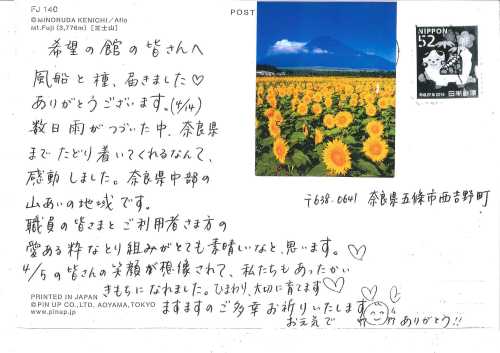 PJ 140
© MINORUDA KENICHI / Aflo
Mt.Fuji (3,776m) [富士山]
POST
NIPPON
52
日本郵便
希望の館の皆さんへ
風船と種、届きました♡
ありがとうございます。(4/14)
数日雨がつづいた中、奈良県
までたどり着いてくれるなんて、
感動しました。奈良県中部の
山あいの地域です。
〒638-0641 奈良県五條市西吉野町
職員の皆さまとご利用者さま方の
愛ある粋なとり組みがとても素晴しいなと、思います。♡
4/5の皆さんの笑顔が想像されて、私たちもあったかい
きもちになれました。ひまわり、大切に育てます♡
ますますのご多幸お祈りいたします
お元気で ありがとう!!
PRINTED IN JAPAN
© PIN UP CO.,LTD. AOYAMA,TOKYO
www.pinup.jp